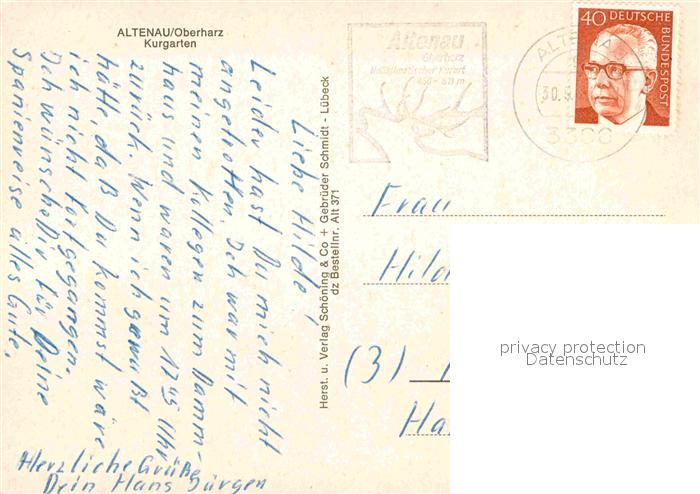 ALTENAU/Oberharz
Kurgarten
Liebe Hilde!
Leider hast Du mich nicht
angetroffen. Ich war mit
meinen Kollegen zum Damm-
haus und waren um 17 45 Uhr
zurück. Wenn ich gewußt
hätte, daß Du kommst wäre
ich nicht fortgegangen.
Ich wünsche Dir für Deine
Spanienreise alles Gute.
Herzliche Grüße
Dein Hans Jürgen
Herst. u. Verlag Schöning & Co + Gebrüder Schmidt - Lübeck
dz Bestellnr. Alt 371
Altenau
Oberharz
Heilklimatischer Kurort
ALTENAU
30.
40 DEUTSCHE
BUNDESPOST
Frau
Hild
(3)
Ha
privacy protection
Datenschutz